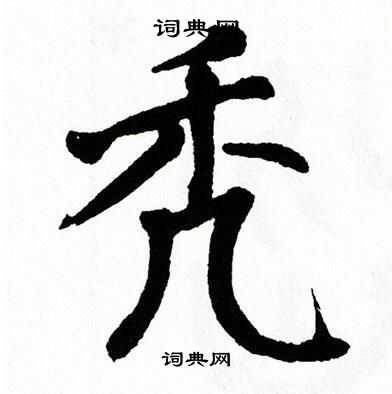 词典网
秃
词典网